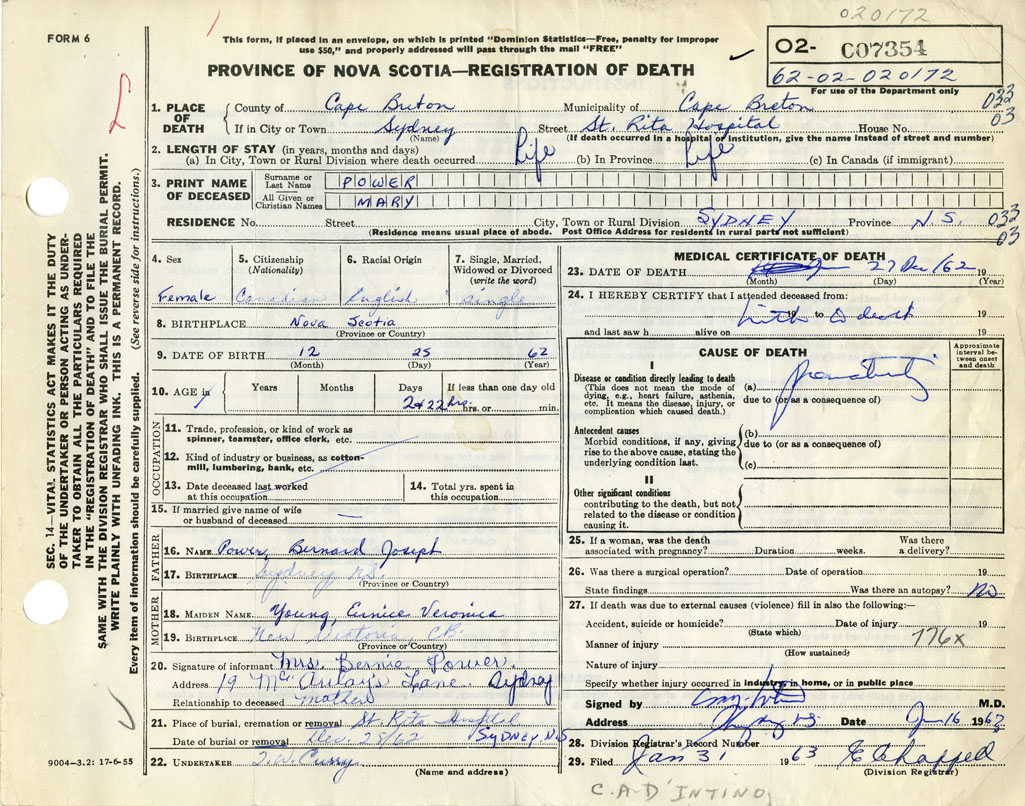 020172
FORM 6
This form, if placed in an envelope, on which is printed "Dominion Statistics—Free, penalty for improper
use $50," and properly addressed will pass through the mail "FREE"
PROVINCE OF NOVA SCOTIA—REGISTRATION OF DEATH
02- C07354
62-02-020172
For use of the Department only
1. PLACE OF DEATH
County of Cape Breton Municipality of Cape Breton 033
If in City or Town Sydney Street St. Rita Hospital House No. 03
(Name) (If death occurred in a hospital or institution, give the name instead of street and number)
2. LENGTH OF STAY (in years, months and days)
(a) In City, Town or Rural Division where death occurred Life (b) In Province Life (c) In Canada (if immigrant)
3. PRINT NAME OF DECEASED
Surname or Last Name POWER
All Given or Christian Names MARY
RESIDENCE No. Street City, Town or Rural Division SYDNEY Province N.S. 033
03
(Residence means usual place of abode. Post Office Address for residents in rural parts not sufficient)
4. Sex
Female
5. Citizenship
(Nationality)
Canadian
6. Racial Origin
English
7. Single, Married,
Widowed or Divorced
(write the word)
Single
8. BIRTHPLACE Nova Scotia
(Province or Country)
9. DATE OF BIRTH 12 25 62
(Month) (Day) (Year)
10. AGE in
Years Months Days If less than one day old
2d 22 hrs. hrs. or min.
OCCUPATION
11. Trade, profession, or kind of work as
spinner, teamster, office clerk, etc.
12. Kind of industry or business, as cotton-
mill, lumbering, bank, etc.
13. Date deceased last worked
at this occupation
14. Total yrs. spent in
this occupation
15. If married give name of wife
or husband of deceased —
FATHER
16. NAME Power, Bernard Joseph
17. BIRTHPLACE Sydney N.S.
(Province or Country)
MOTHER
18. MAIDEN NAME Young, Eunice Veronica
19. BIRTHPLACE New Victoria, C.B.
(Province or Country)
20. Signature of informant Mrs. Bernie Power.
Address 19 McAulay's Lane Sydney
Relationship to deceased Mother
21. Place of burial, cremation or removal St. Rita Hospital
Date of burial or removal Dec. 28/62 SYDNEY, N.S.
22. UNDERTAKER T.W. Curry
(Name and address)
MEDICAL CERTIFICATE OF DEATH
23. DATE OF DEATH 27 Dec/62 19
(Month) (Day) (Year)
24. I HEREBY CERTIFY that I attended deceased from:
birth 19 to death 19
and last saw h alive on 19
CAUSE OF DEATH
Approximate
interval be-
tween onset
and death
I
Disease or condition directly leading to death
(This does not mean the mode of
dying, e.g., heart failure, asthenia,
etc. It means the disease, injury, or
complication which caused death.)
(a) Prematurity
due to (or as a consequence of)
Antecedent causes
Morbid conditions, if any, giving
rise to the above cause, stating the
underlying condition last.
(b)
due to (or as a consequence of)
(c)
II
Other significant conditions
contributing to the death, but not
related to the disease or condition
causing it.
25. If a woman, was the death
associated with pregnancy? Duration weeks. Was there
a delivery?
26. Was there a surgical operation? Date of operation 19
State findings Was there an autopsy? No
27. If death was due to external causes (violence) fill in also the following:—
Accident, suicide or homicide? Date of injury 19
(State which)
Manner of injury 776X
(How sustained)
Nature of injury
Specify whether injury occurred in industry, in home, or in public place
Signed by M.D.
Address Date Jan 16 1963
28. Division Registrar's Record Number
29. Filed Jan 31 1963 E Chappell
(Division Registrar)
C.A-D'INTINO
SEC. 14—VITAL STATISTICS ACT MAKES IT THE DUTY
OF THE UNDERTAKER OR PERSON ACTING AS UNDER-
TAKER TO OBTAIN ALL THE PARTICULARS REQUIRED
IN THE "REGISTRATION OF DEATH" AND TO FILE THE
SAME WITH THE DIVISION REGISTRAR WHO SHALL ISSUE THE BURIAL PERMIT.
WRITE PLAINLY WITH UNFADING INK. THIS IS A PERMANENT RECORD.
Every item of information should be carefully supplied. (See reverse side for instructions.)
9004—3.2: 17-6-55